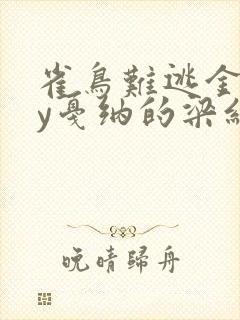 雀鳥難逃全
y戛納的梁
晚晴歸舟